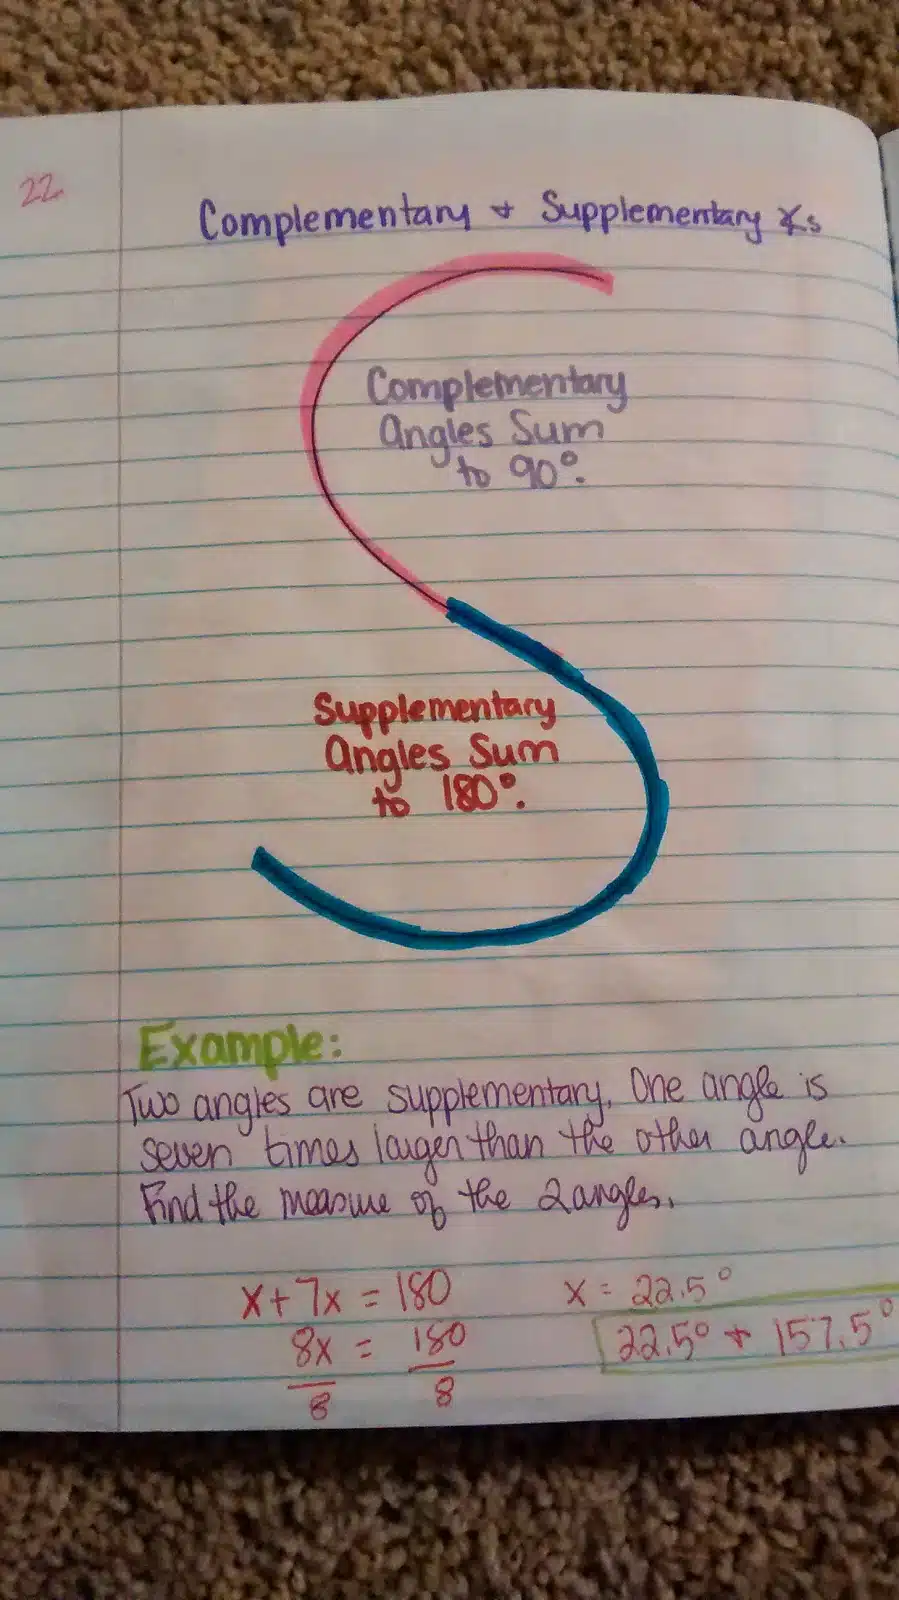 22
Complementary + Supplementary ∡s
Complementary
Angles Sum
to 90°.
Supplementary
Angles Sum
to 180°.
Example:
Two angles are supplementary. One angle is
seven times larger than the other angle.
Find the measure of the 2 angles.
x+7x = 180
x = 22.5°
8x = 180
22.5° + 157.5°
8 8